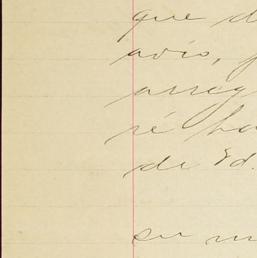 que d
avio, p
arreg
ré ha
de Ed.
su m